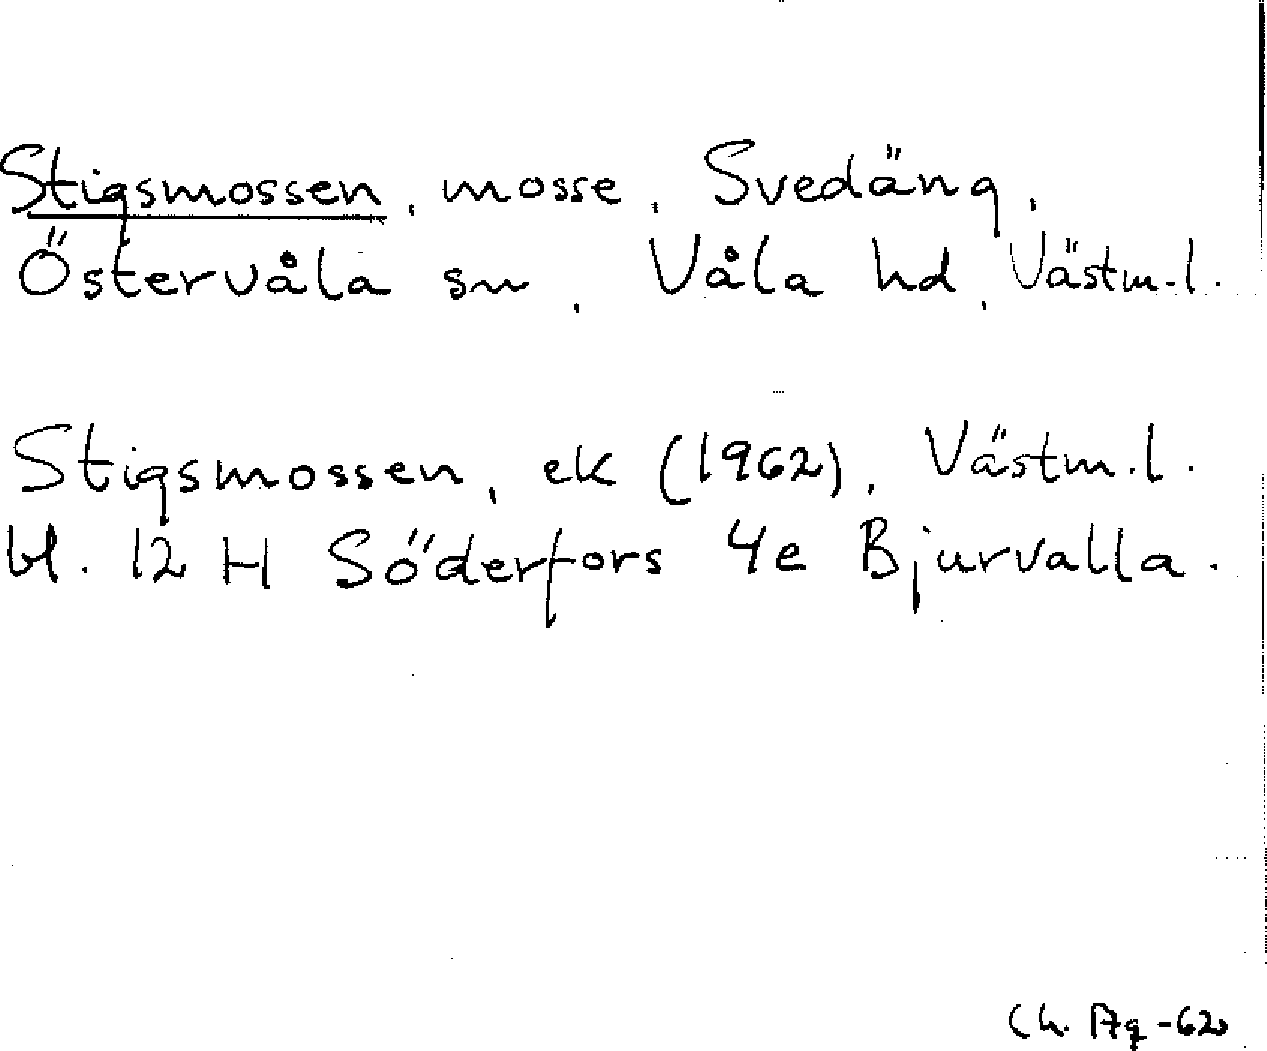 Stigsmossen, mosse, Svedäng,
Östervåla sn, Våla hd, Västm.l.
Stigsmossen, ek (1962), Västm.l.
bl. 12 H Söderfors 4e Bjurvalla.
Ch. Ag -62